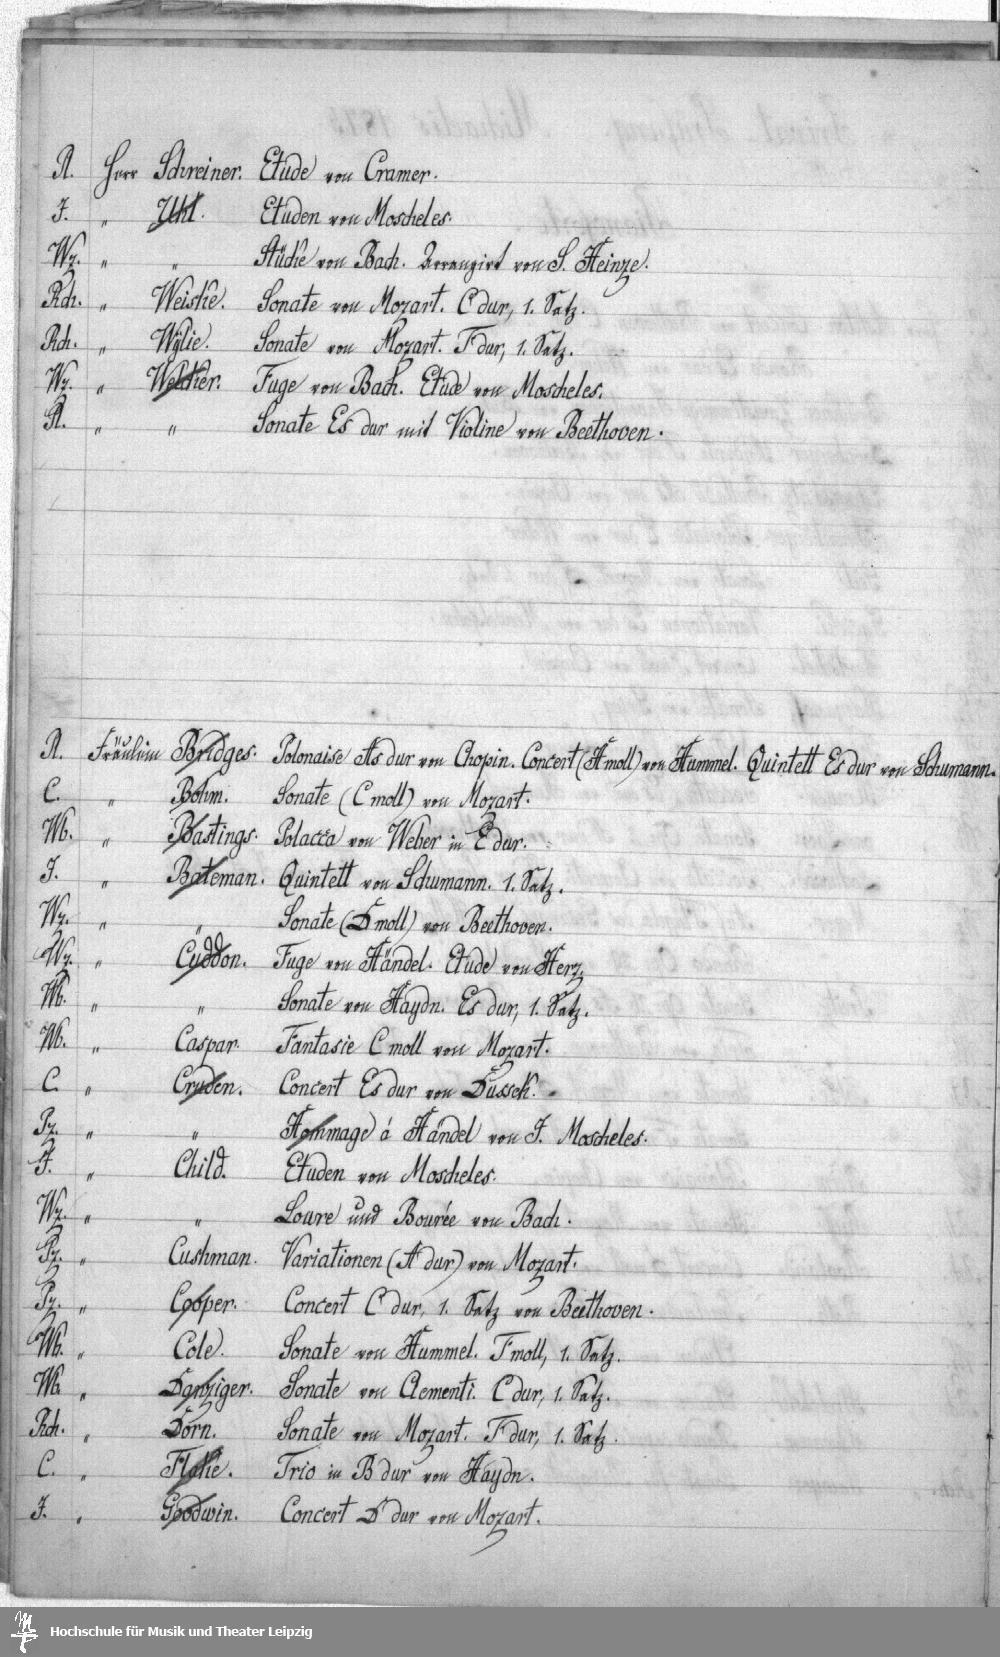 R. Herr Schreiner. Etude von Cramer.
J. " Uhl. Etuden von Moscheles.
Wz. " " Stücke von Bach. Arrangirt von S. Heinze.
Rch. " Weiske. Sonate von Mozart. C dur, 1. Satz.
Rch. " Wÿlie. Sonate von Mozart. F dur, 1. Satz.
Wz. " Welcker. Fuge von Bach. Etude von Moscheles.
R. " " Sonate Es dur mit Violine von Beethoven.
R. Fräulein Bridges. Polonaise As dur von Chopin. Concert (H moll) von Hummel. Quintett Es dur von Schumann.
C. " Böhm. Sonate (C moll) von Mozart.
Wb. " Bastings. Polacca von Weber in E dur.
J. " Bateman. Quintett von Schumann. 1. Satz.
Wz. " " Sonate (D moll) von Beethoven.
Wz. " Cuddon. Fuge von Händel. Etude von Herz.
Wb. " " Sonate von Haydn. Es dur, 1. Satz.
Wb. " Caspar. Fantasie C moll von Mozart.
C. " Cruden. Concert Es dur von Dussek.
Pz. " " Hommage á Händel von J. Moscheles.
J. " Child. Etuden von Moscheles.
Wz. " " Loure und Bourée von Bach.
Pz. " Cushman. Variationen (A dur) von Mozart.
Pz. " Cooper. Concert C dur, 1. Satz von Beethoven.
Wb. " Cole. Sonate von Hummel. F moll, 1. Satz.
Wb. " Danziger. Sonate von Clementi. C dur, 1. Satz.
Rch. " Dorn. Sonate von Mozart. F dur, 1. Satz.
C. " Flake. Trio in B dur von Haydn.
J. " Goodwin. Concert D dur von Mozart.
Hochschule für Musik und Theater Leipzig